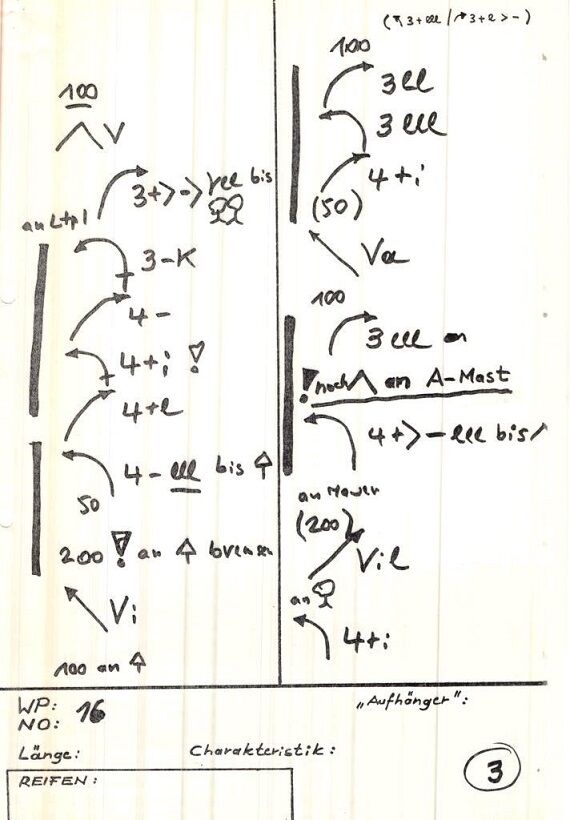 (↖3+lll / ↗3+l>-)
100
V
3+>->
lll bis
an Ltpl
3-K
4-
4+i !
4+l
4-lll bis
50
200 ! an bremsen
Vi
100 an
100
3ll
3lll
4+i
(50)
Va
100
3lll an
! noch an A-Mast
4+>-lll bis
an Mauer
(200)
Vil
an
4+i
WP:
NO: 16
Länge:
REIFEN:
„Aufhänger":
Charakteristik:
3